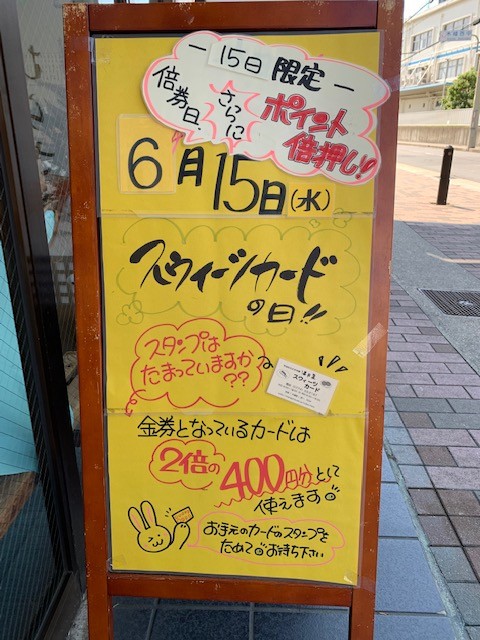 15日 限定
倍券日
さらに
ポイント
倍押し!!
6月15日(水)
スウィーツカード
の日!!
スタンプは
たまっていますか
??
スウィーツ
カード
金券となっているカードは
2倍の400円分として
使えます
お手元のカードのスタンプを
ためてお待ち下さい